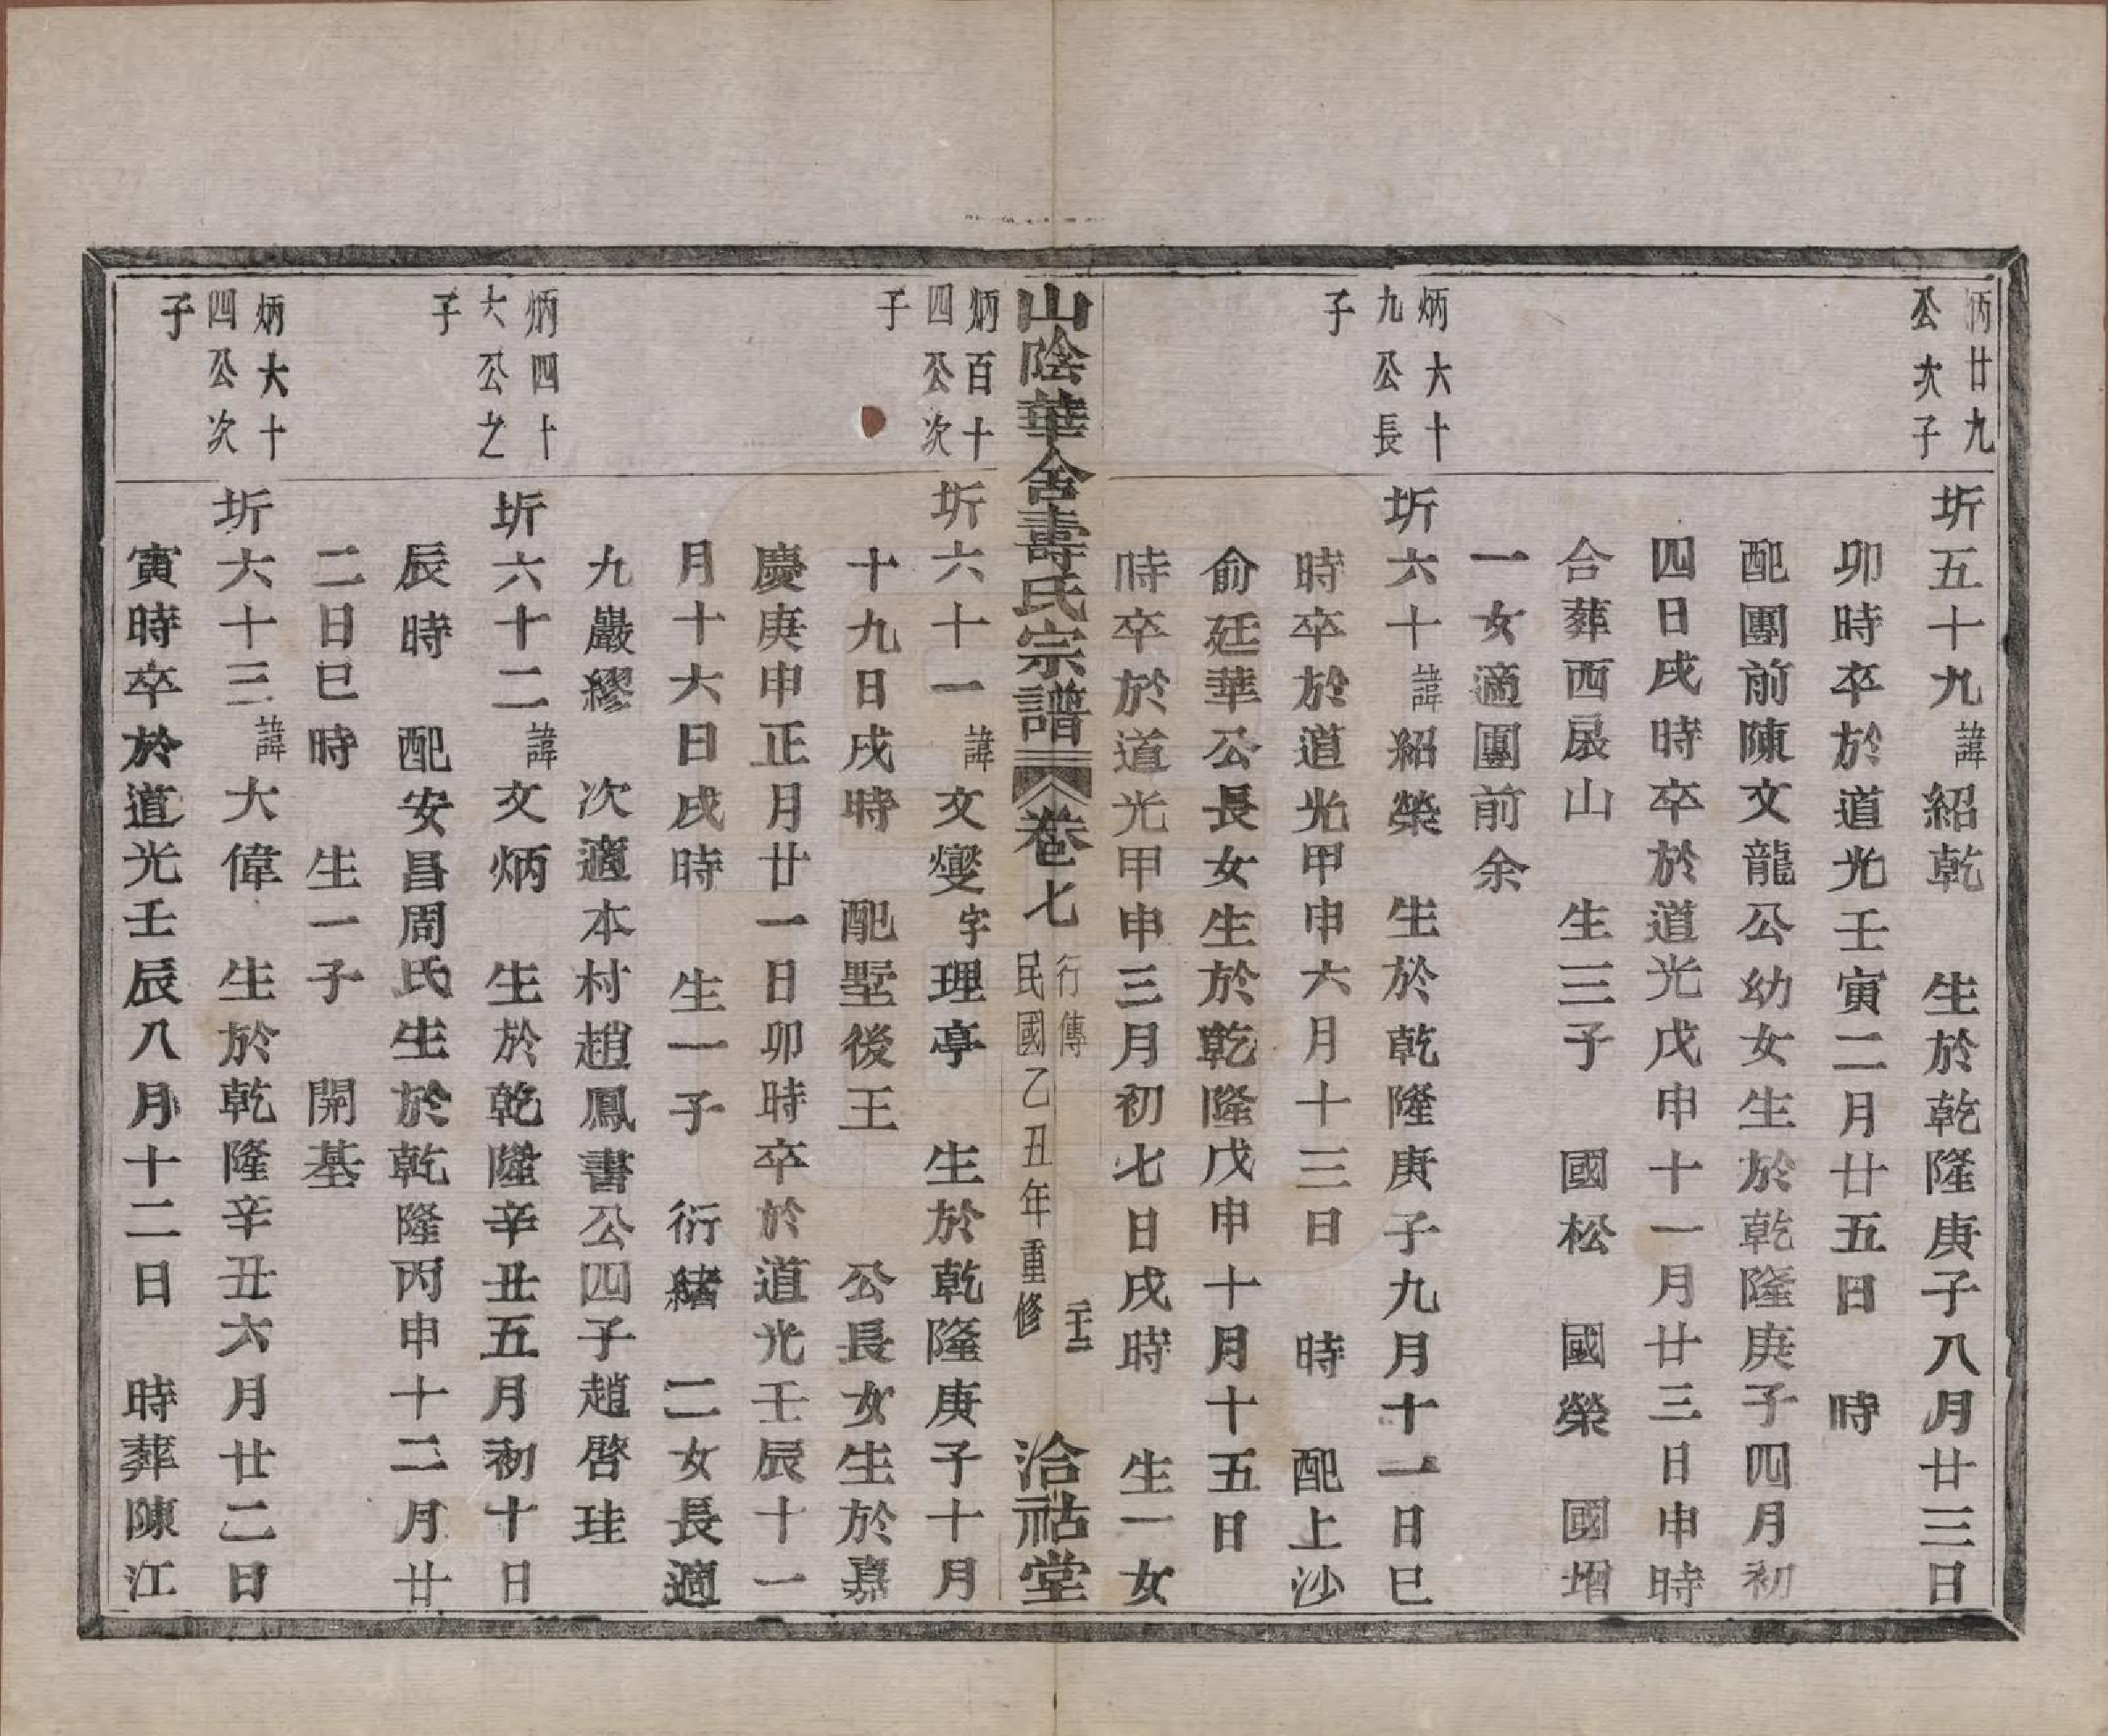 炳廿九
公次子
圻五十九諱紹乾　生於乾隆庚子八月廿三日
卯時卒於道光壬寅二月廿五日　時
配團前陳文龍公幼女生於乾隆庚子四月初
四日戌時卒於道光戊申十一月廿三日申時
合葬西扆山　生三子　國松　國榮　國增
一女適團前余
炳六十
九公長
子
圻六十諱紹榮　生於乾隆庚子九月十一日巳
時卒於道光甲申六月十三日　時　配上沙
俞廷華公長女生於乾隆戊申十月十五日
時卒於道光甲申三月初七日戌時　生一女
山陰華舍壽氏宗譜　卷七　行傳　民國乙丑年重修　洽祜堂
炳百十
四公次
子
圻六十一諱文燮字理亭　生於乾隆庚子十月
十九日戌時　配墅後王　公長女生於嘉
慶庚申正月廿一日卯時卒於道光壬辰十一
月十六日戌時　生一子　衍緒　二女長適
九巖繆　次適本村趙鳳書公四子趙啓珪
炳四十
六公之
子
圻六十二諱文炳　生於乾隆辛丑五月初十日
辰時　配安昌周氏生於乾隆丙申十二月廿
二日巳時　生一子　開基
炳六十
四公次
子
圻六十三諱大偉　生於乾隆辛丑六月廿二日
寅時卒於道光壬辰八月十二日　時葬陳江